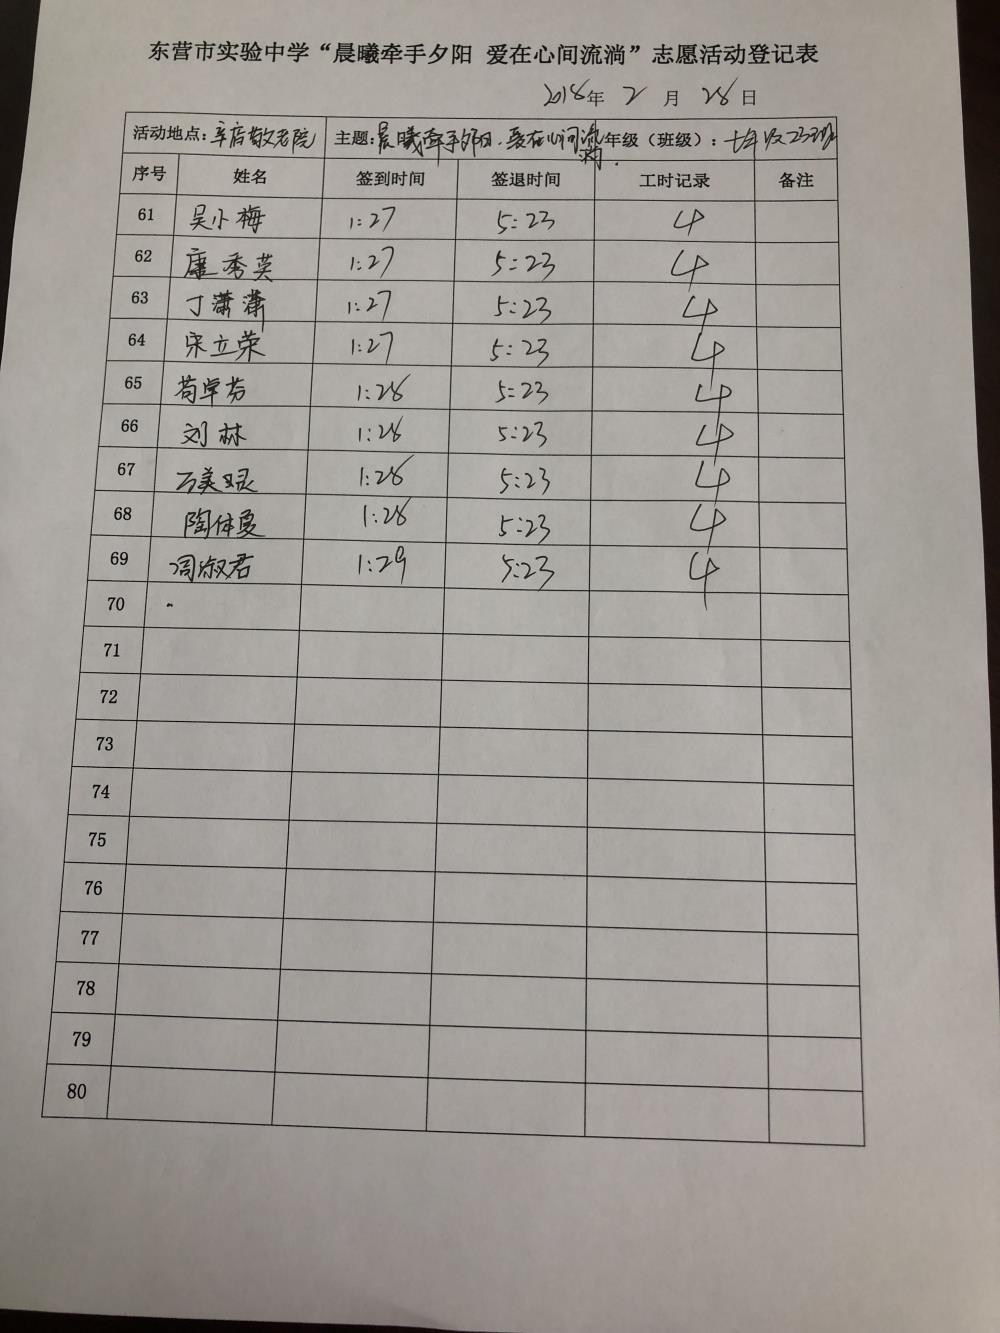 东营市实验中学“晨曦牵手夕阳 爱在心间流淌”志愿活动登记表
2018年 2 月 28 日
活动地点：辛店敬老院 主题：晨曦牵手夕阳，爱在心间流淌. 年级（班级）：七年级23班
序号 姓名 签到时间 签退时间 工时记录 备注
61 吴小梅 1:27 5:23 4
62 康秀英 1:27 5:23 4
63 丁潇潇 1:27 5:23 4
64 宋立荣 1:27 5:23 4
65 苟学芬 1:28 5:23 4
66 刘林 1:28 5:23 4
67 1:28 5:23 4
68 1:28 5:23 4
69 周淑君 1:29 5:23 4
70
71
72
73
74
75
76
77
78
79
80